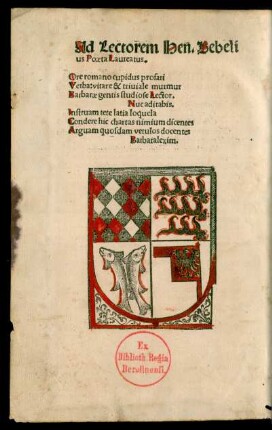 Ad Lectorem Hen. Bebeli
us Poeta Laureatus.
Ore romano cupidus profari
Verba vitare & triuiale murmur
Barbaræ gentis studiose Lector.
Huc aditabis.
Instruam te te latia loquela
Condere hic chartas nimium dicentes
Arguam quosdam vetulos docentes
Barbaralexim.
Ex
Biblioth. Regia
Berolinensi.